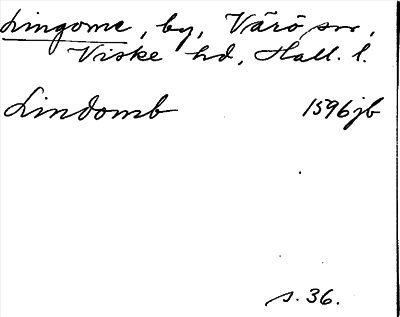 Lingome, by, Värö sn,
Viske hd, Hall. l.
Lindomb 1596 jb
s. 36.